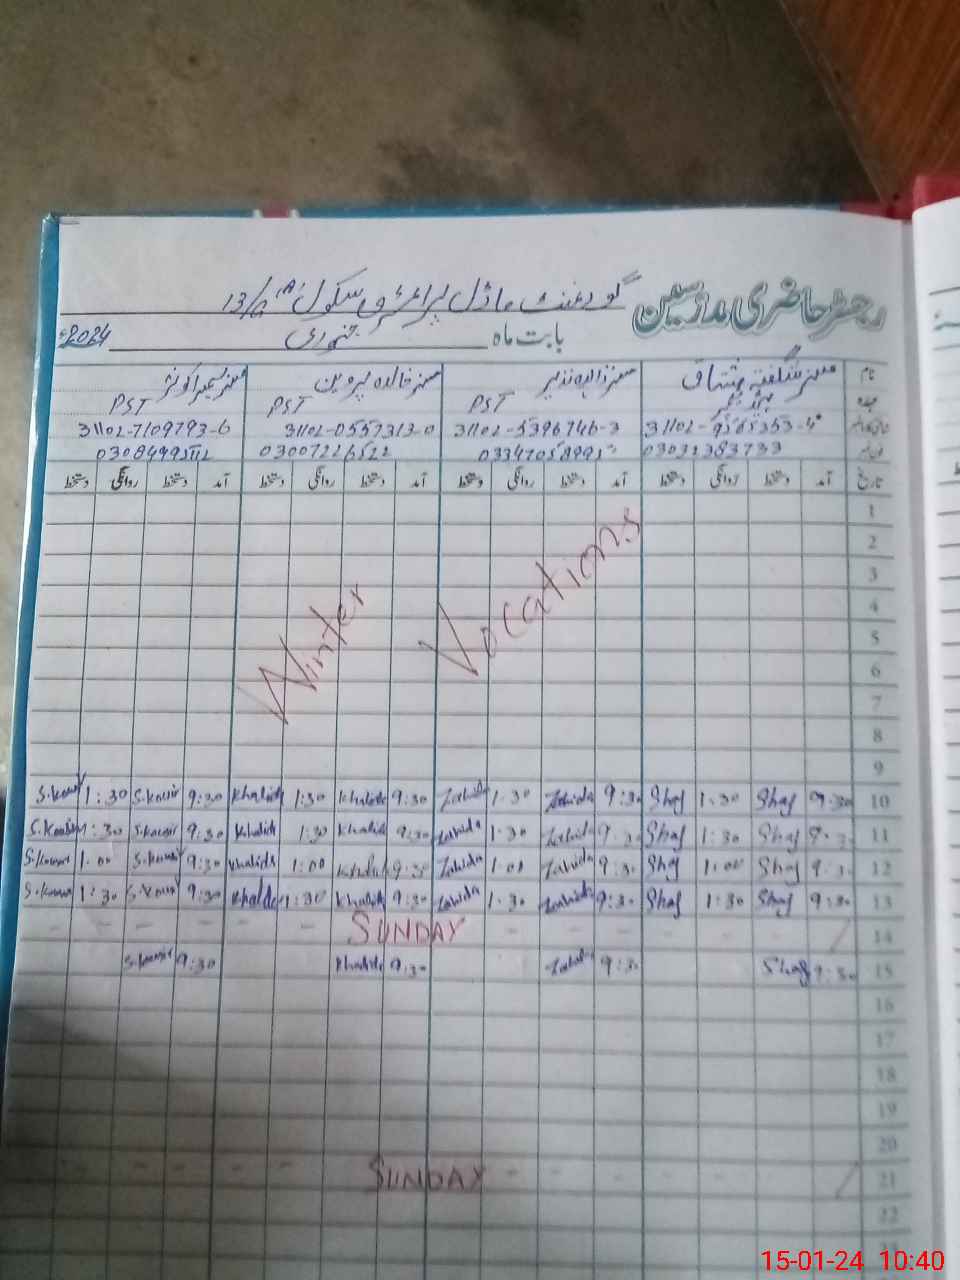 رجسٹر حاضری مدرسین گورنمنٹ ماڈل پرائمری سکول 13/G
بابت ماہ جنوری 2024ء
نام مسز شگفتہ مشتاق مسز زاہدہ نذیر مسز خالدہ پروین مسز سمیرا کوثر
عہدہ PST PST PST
31102-5396746-3 31102-0557313-0 31102-7109793-6
03032383733 03007226522
تاریخ آمد دستخط روانگی دستخط آمد دستخط روانگی دستخط آمد دستخط روانگی دستخط آمد دستخط روانگی دستخط
1
2
3
4
5
6
7
8
9
Winter Vocations
10 9:30 Shaf 1:30 Shaf 9:30 Zahida 1:30 Zahida 9:30 Khalida 1:30 Khalida 9:30 S.Kousir 1:30 S.Kousir
11 9:30 Shaf 1:30 Shaf 9:30 Zahida 1:30 Zahida 9:30 Khalida 1:30 Khalida 9:30 S.Kousir 1:30 S.Kousir
12 9:30 Shaf 1:00 Shaf 9:30 Zahida 1:00 Zahida 9:30 Khalida 1:00 Khalida 9:30 S.Kousir 1:00 S.Kousir
13 9:30 Shaf 1:30 Shaf 9:30 Zahida 1:30 Zahida 9:30 Khalida 1:30 Khalida 9:30 S.Kousir 1:30 S.Kousir
14 SUNDAY
15 9:30 Shaf 9:30 Zahida 9:30 Khalida 9:30 S.Kousir
16
17
18
19
20
21 SUNDAY
22
15-01-24 10:40